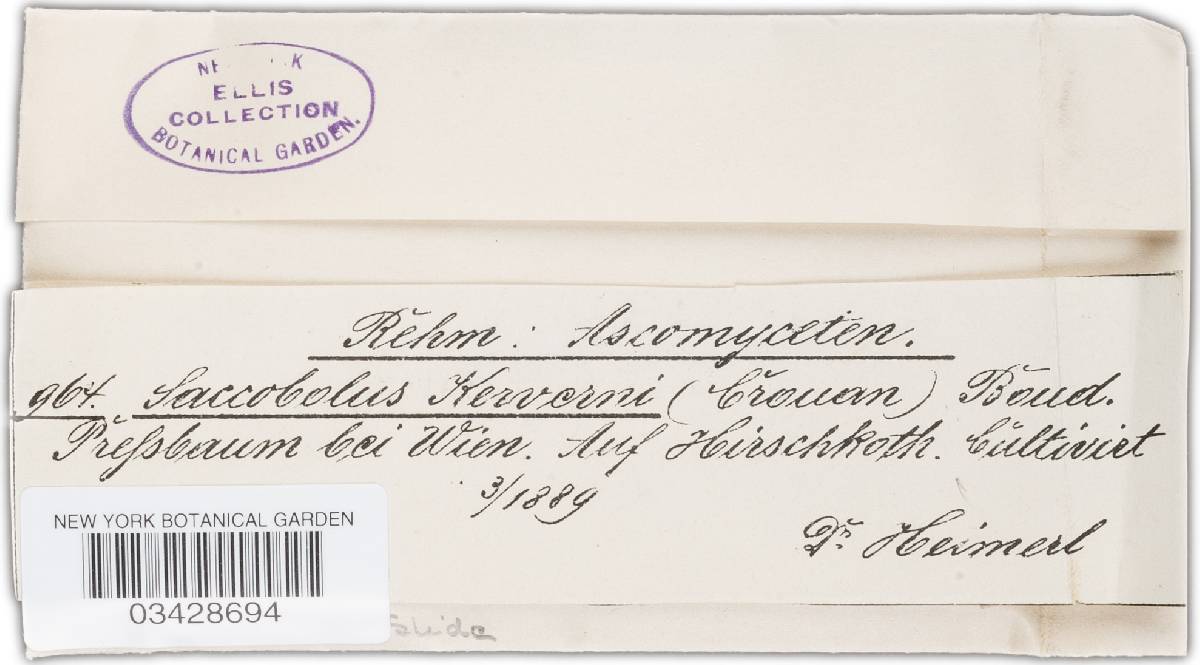 ELLIS
COLLECTION
BOTANICAL GARDEN.
Rehm: Ascomyceten.
964. Saccobolus Kerverni (Crouan) Boud.
Preſsbaum bei Wien. Auf Hirschkoth. Cultivirt
3/1889
Dr Heimerl
NEW YORK BOTANICAL GARDEN
03428694